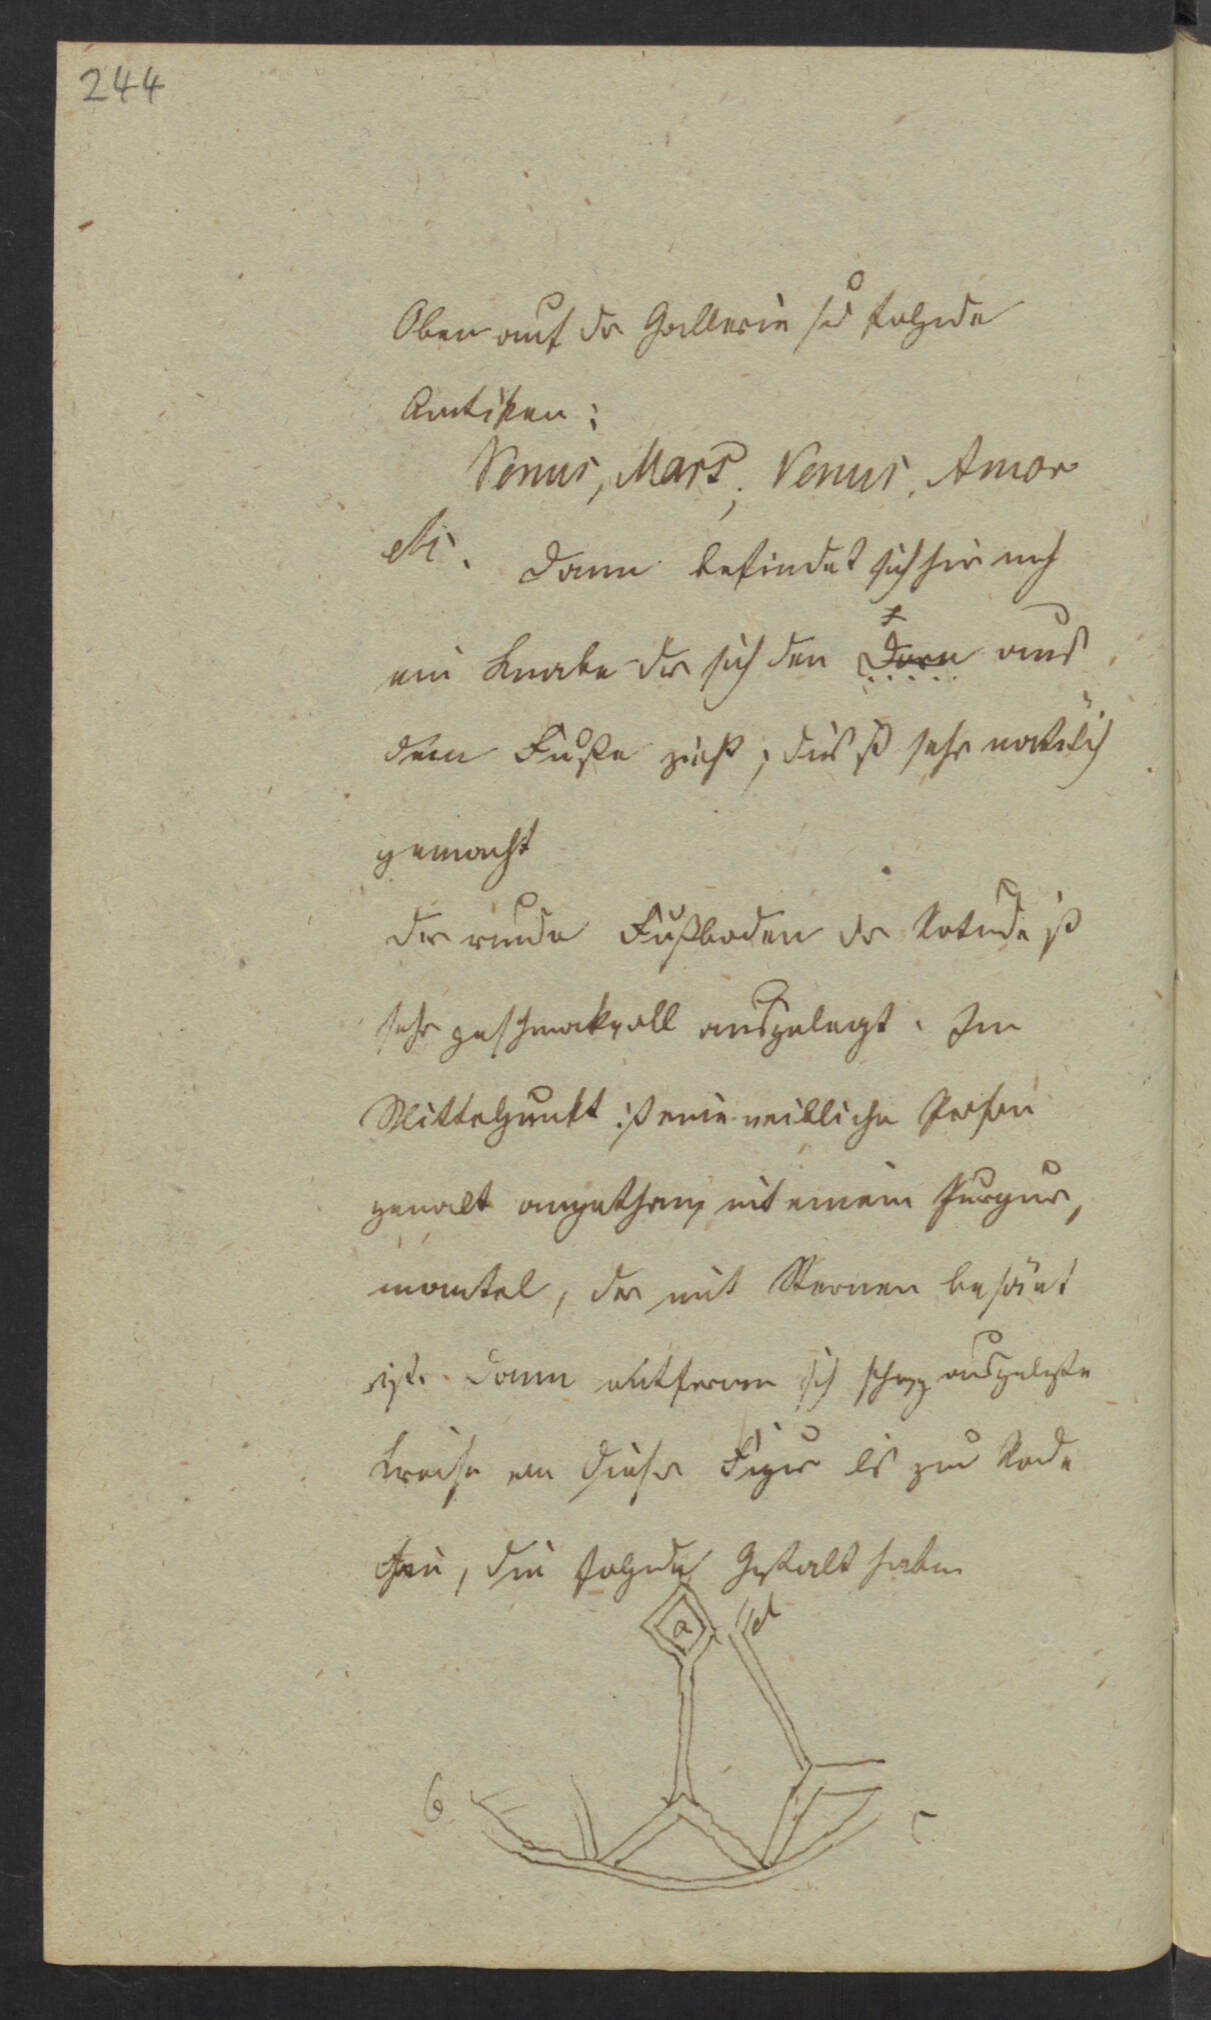 244
Oben auf der Gallerie sid folgende
Antiken:
Venus, Mars, Venus, Amor
etc. Dann befindet sich hier noch
ein Knabe der sich den Dorn aus
dem Fuße zieht; dies ist sehr natürlich
gemacht
Der runde Fußboden der Rotunde ist
sehr geschmakvoll ausgelegt. Im
Mittelpunkt ist eine weibliche Person
gemalt angethan mit einem Purpur,
mantel, der mit Sternen besäet
ist. Dann entfernen sich ausgelegte
Kreise von dieser Figur bis zur
die folgende Gestalt haben
a d
b c